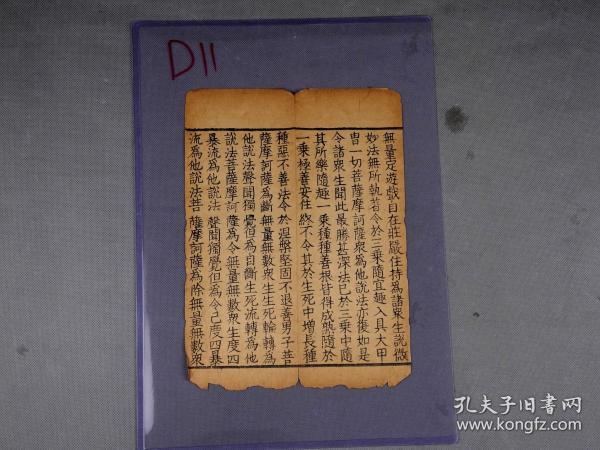 D11
無量定遊戲自在莊嚴住持為諸衆生說微
妙法無所執著令於三乘隨宜趣入具大甲
胄一切菩薩摩訶薩衆為他說法亦復如是
令諸衆生聞此最勝甚深法已於三乘中隨
其所樂隨趣一乘種種善根皆得成熟隨於
一乘極善安住終不令其於生死中增長種
種惡不善法令於涅槃堅固不退善男子菩
薩摩訶薩為斷無量無數衆生生死輪轉為
他說法聲聞獨覺但為自斷生死流轉為他
說法菩薩摩訶薩為令無量無數衆生度四
暴流為他說法聲聞獨覺但為令己度四暴
流為他說法菩薩摩訶薩為除無量無數衆
孔夫子旧书网
www.kongfz.com